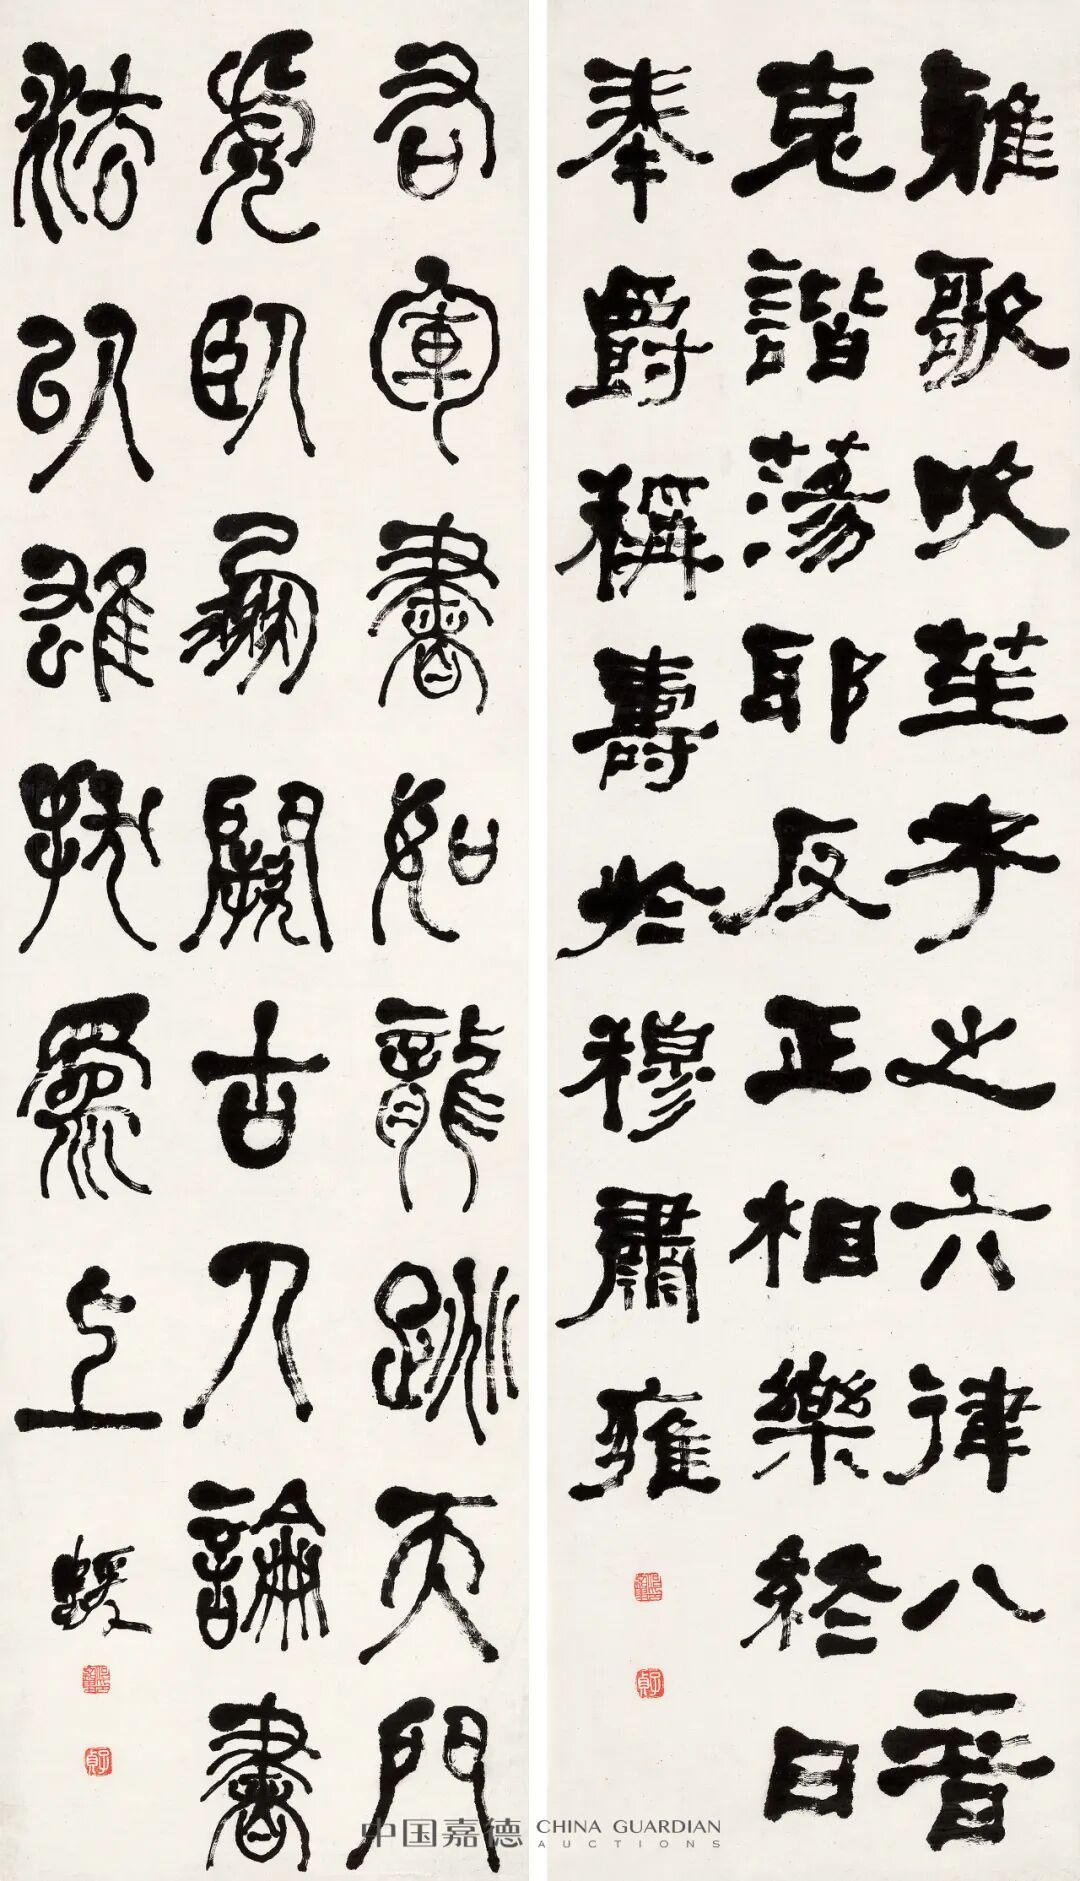 雅歌吹笙考之六律八音
克諧蕩耶反正相樂終日
奉爵稱壽於穆肅雍
子貞
右軍書如龍跳天門
虎臥鳳闕古人論書
法以雄拔爲上
蝯叟
子貞
中国嘉德 CHINA GUARDIAN
AUCTIONS